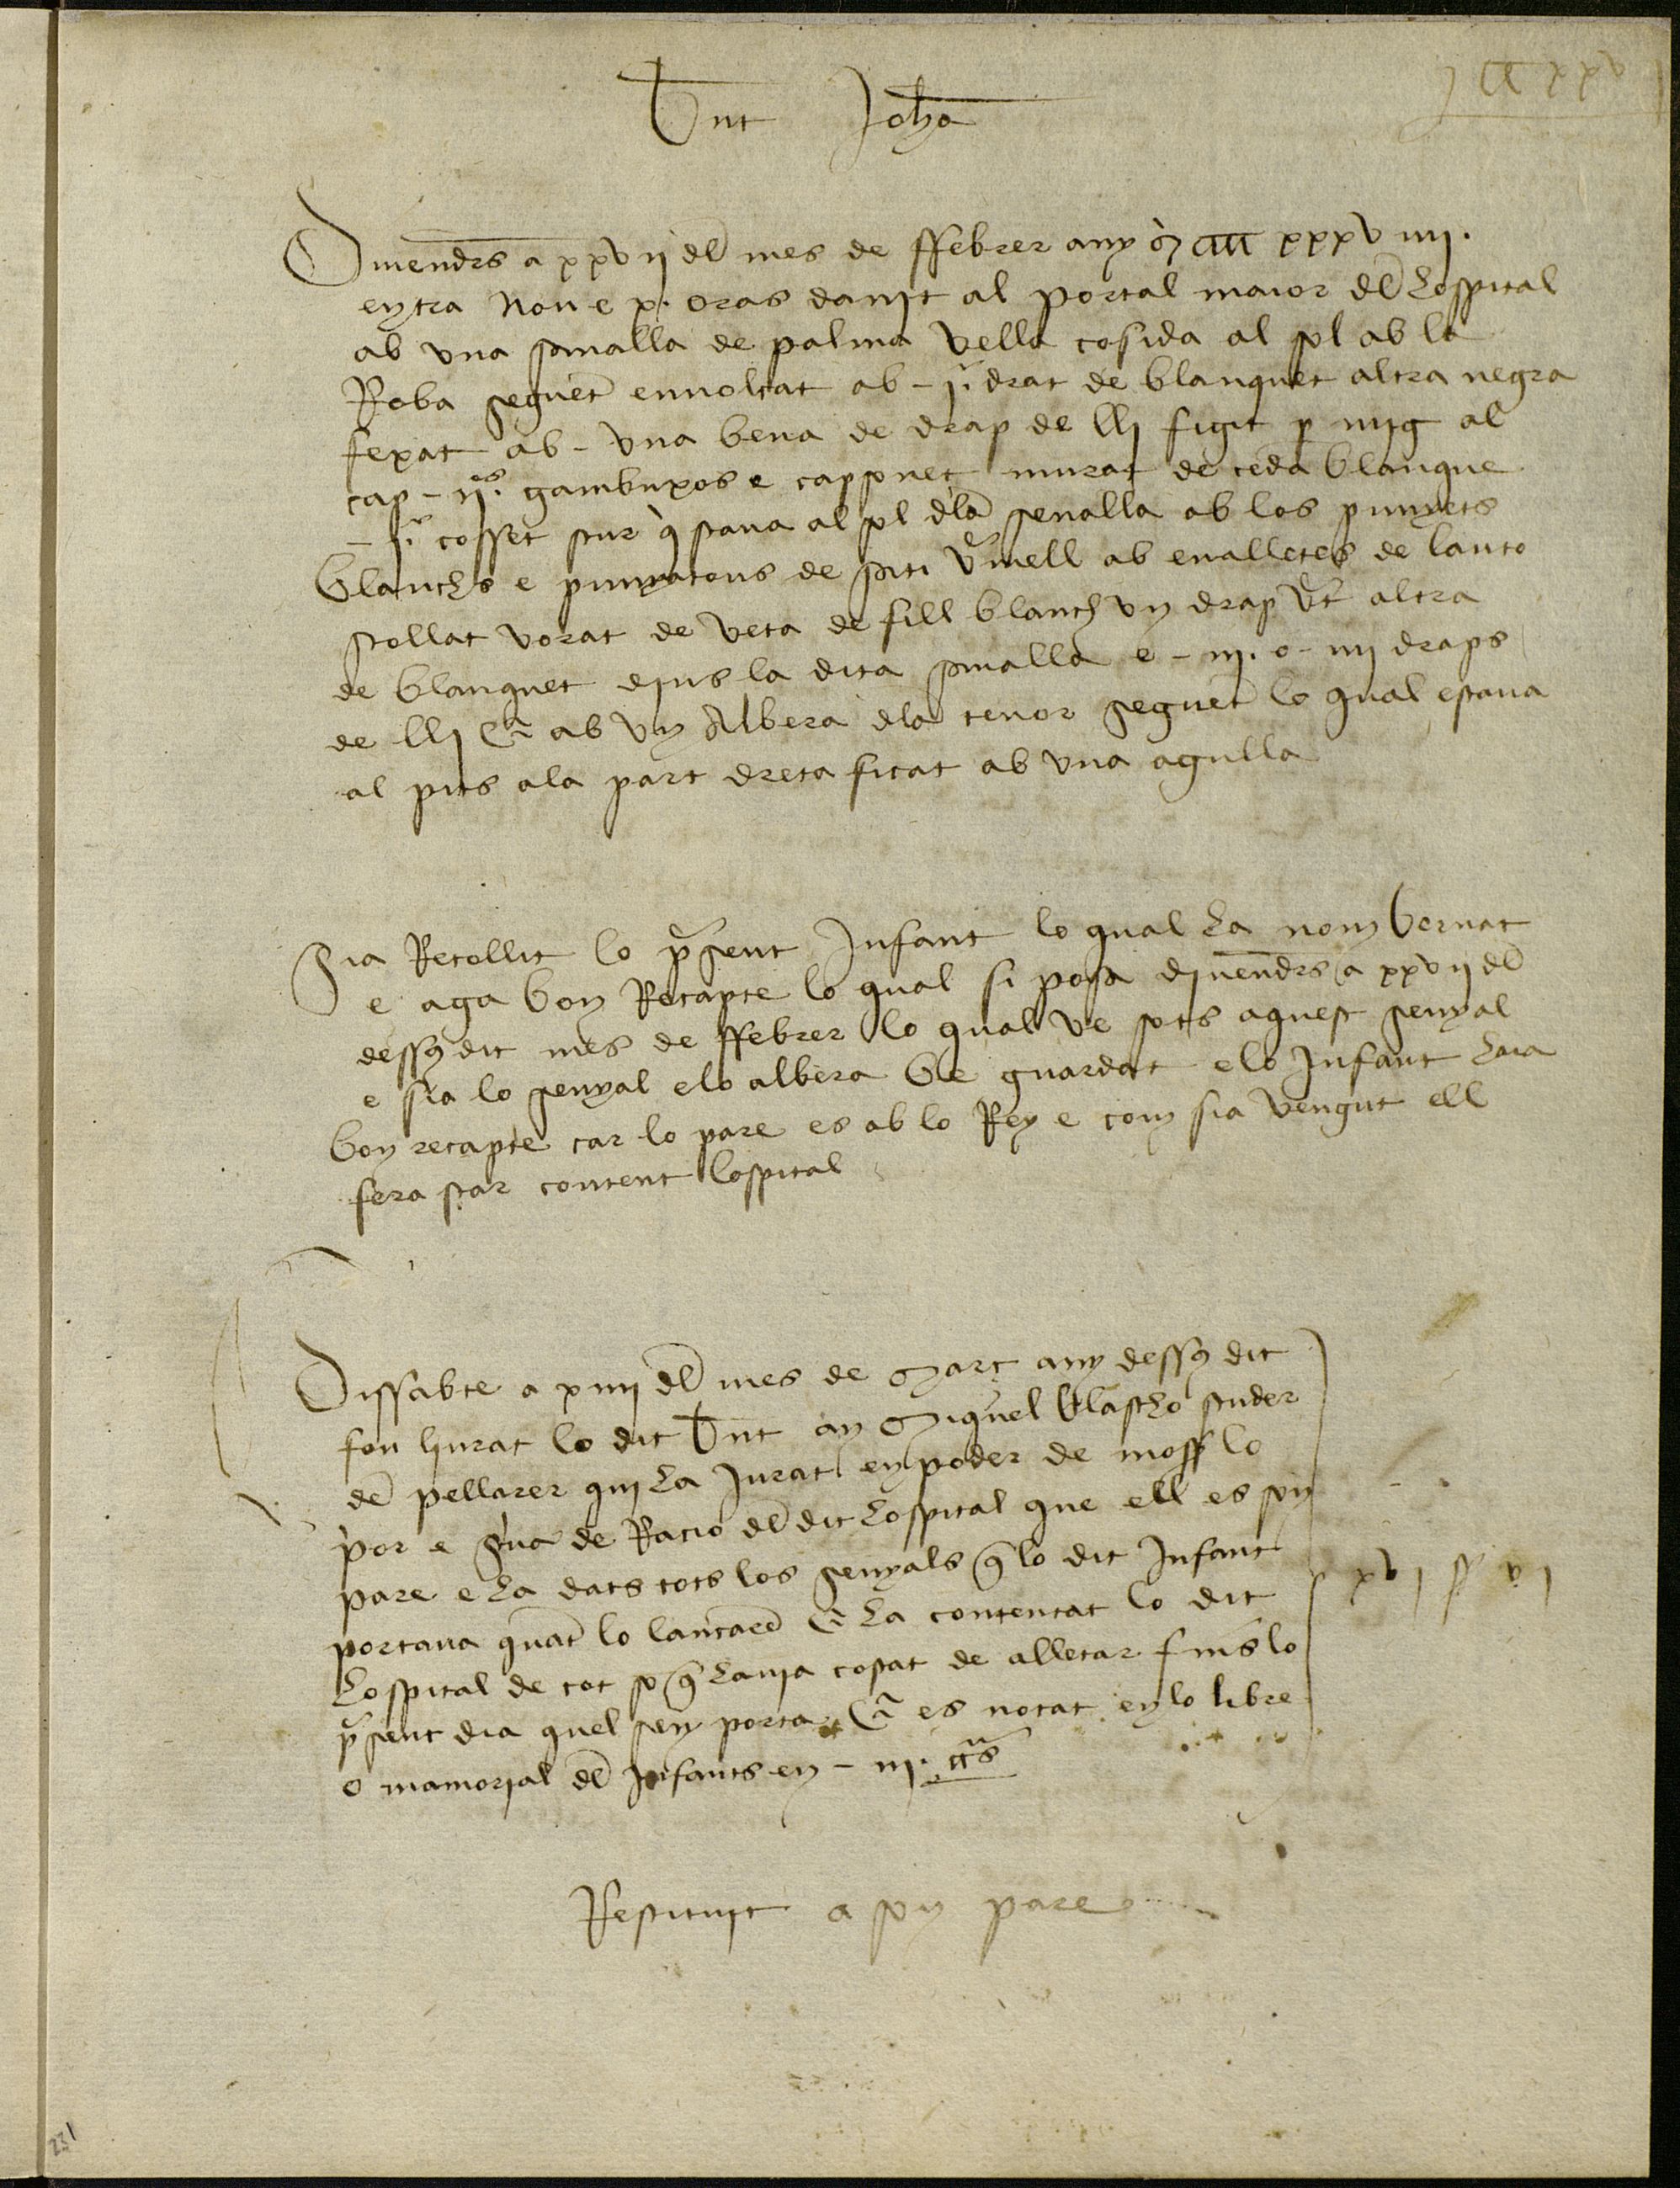 Bn̄t Johā
j CC xxv
Divendrs a xxvij dl mes de ffebrer any M CCCC xxxviiij.
entra nou e x. oras de nit al portal maior dl hospital
ab vna senalla de palma vella cosida al sol ab la
Roba seguēt envolcat ab - jᵃ. drat de blanquet altra negra
fexat ab - vna bena de drap de lli sigit p mig al
cap - ij. gambuxos e caponet murat de ceda blanque
- j. cosset scur q̇ stava al sol dla senalla ab los punyets
blanchs e punyatons de seti v̄mell ab evalletes de lauto
scollat vorat de veta de fill blanch vn drap altra
de blanquet dins la dita senalla e - iij. o - iiij draps
de lli ab vn Albera dla tenor seguēt lo qual estava
al pits ala part dreta ficat ab vna agulla
Sia Recollit lo p̄sent Infant lo qual ha nom bernat
e aga bon Recapte lo qual si posa divendrs a xxvij dl
dessꝯ dit mes de ffebrer lo qual ve sots aquest senyal
e sia lo senyal e lo albera be guardat e lo Infant haia
bon recapte car lo pare es ab lo Rey e com sia vengut ell
fera star content lospital
Dissabte a xiiij dl mes de Març any dessꝯ dit
fou liurat lo dit Bn̄t an Miquel Blascho scuder
dē pellarer qui ha Jurat en poder de moss lo
p̀or e de Racio dl dit hospital que ell es son
pare e ha dats tots los senyals q̄ lo dit Infant
portava quāt lo lançarē ha contentat lo dit
hospital de tot so q̄ havia costat de alletar fins lo
p̄sent dia quel sen porta es notat en lo libre
o mamorial dl Infants en - iij. ctꝭ
xvj ss vj
Restituit a son pare
231